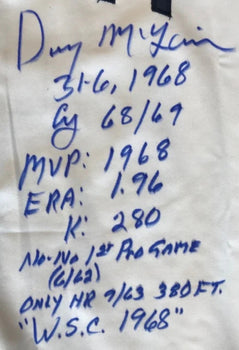 Denny McLain
31-6, 1968
Cy 68/69
MVP: 1968
ERA: 1.96
K: 280
No-No 1st Pro GAME
(6/62)
ONLY HR 9/63 380 FT.
"W.S.C. 1968"